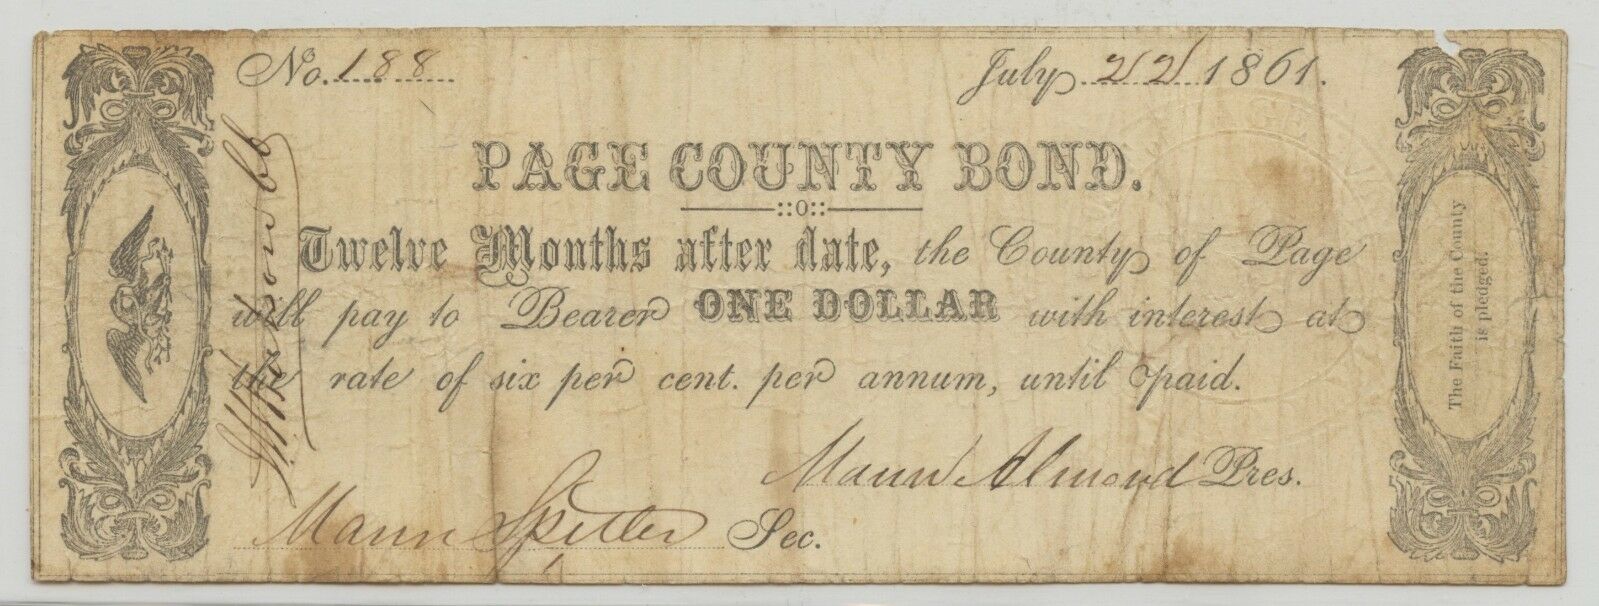 No. 188
July 22 1861.
PAGE COUNTY BOND.
::o::
Twelve Months after date, the County of Page
will pay to Bearer ONE DOLLAR with interest at
the rate of six per cent. per annum, until paid.
Mann Almond Pres.
Mann Spitler Sec.
The Faith of the County
is pledged.